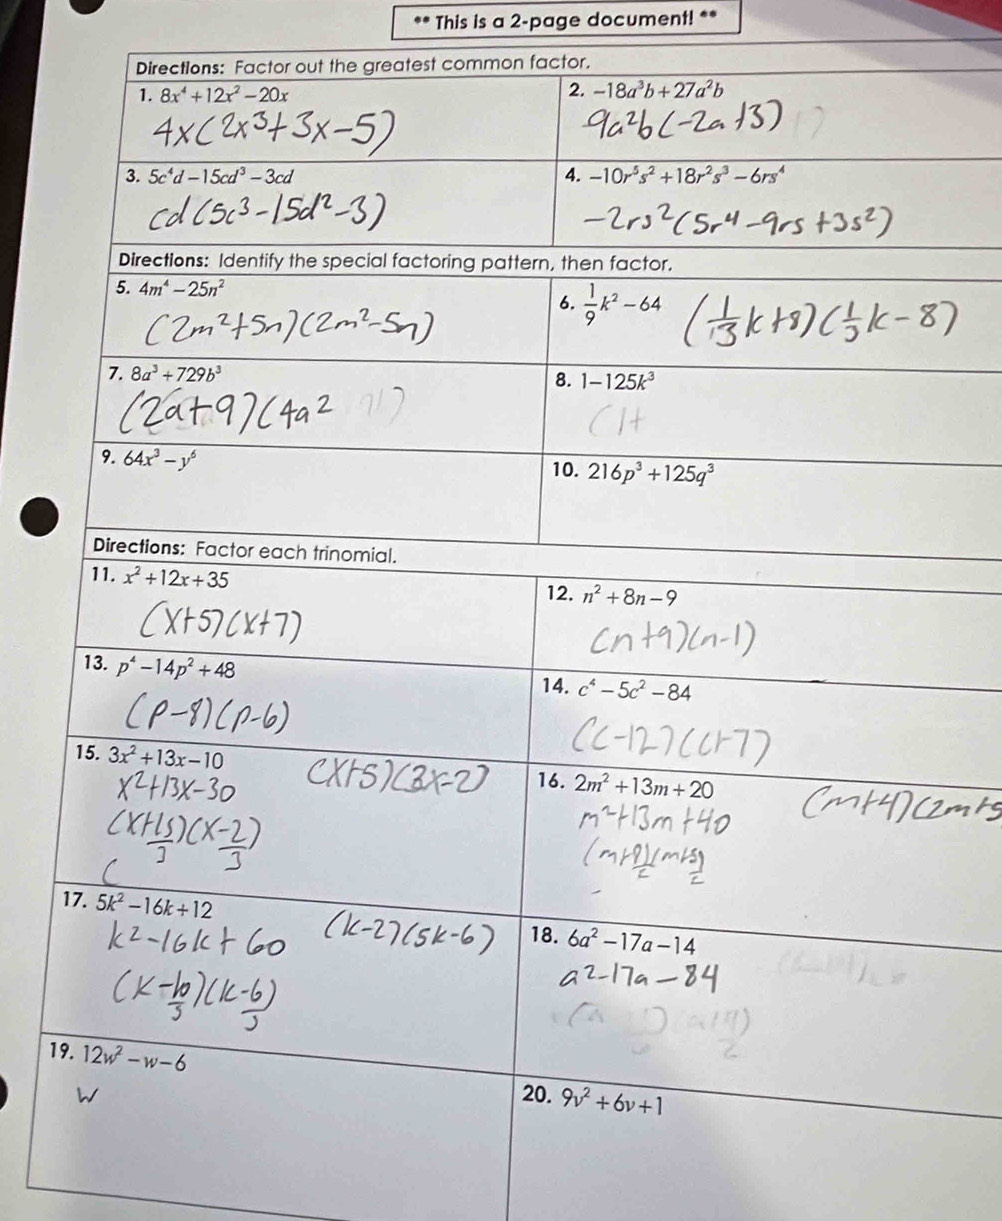 ** This is a 2-page document! **
Directions: Factor out the greatest common factor.
1. 8x⁴ + 12x² − 20x
4x(2x³+3x−5)
2. −18a³b + 27a²b
9a²b(−2a+3)
3. 5c⁴d − 15cd³ − 3cd
cd(5c³−15d²−3)
4. −10r⁵s² + 18r²s³ − 6rs⁴
−2rs²(5r⁴−9rs+3s²)
Directions: Identify the special factoring pattern, then factor.
5. 4m⁴ − 25n²
(2m²+5n)(2m²−5n)
6. 1/9 k² − 64
(1/3 k+8)(1/3 k−8)
7. 8a³ + 729b³
(2a+9)(4a²
8. 1 − 125k³
(1+
9. 64x³ − y⁶
10. 216p³ + 125q³
Directions: Factor each trinomial.
11. x² + 12x + 35
(x+5)(x+7)
12. n² + 8n − 9
(n+9)(n−1)
13. p⁴ − 14p² + 48
(p−8)(p−6)
14. c⁴ − 5c² − 84
(c−12)(c+7)
15. 3x² + 13x − 10
x²+13x−30
(x+5)(3x−2)
(x+15/3)(x−2/3)
(
16. 2m² + 13m + 20
(m+4)(2m+5
m²+13m+40
(m+8/2)(m+5/2)
17. 5k² − 16k + 12
k²−16k+60
(k−2)(5k−6)
(k−10/5)(k−6/5)
18. 6a² − 17a − 14
a²−17a−84
19. 12w² − w − 6
w
20. 9v² + 6v + 1